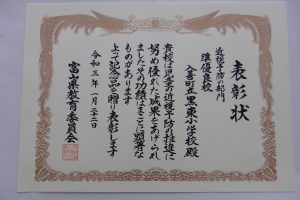 表彰状
近視予防の部門
準優良校
入善町立黒東小学校殿
貴校は児童の近視予防の推進に
努め優れた成果をあげられ
ましたその功績はまことに顕著な
ものがあります
よって記念品を贈り表彰します
令和三年一月二十二日
富山県教育委員会